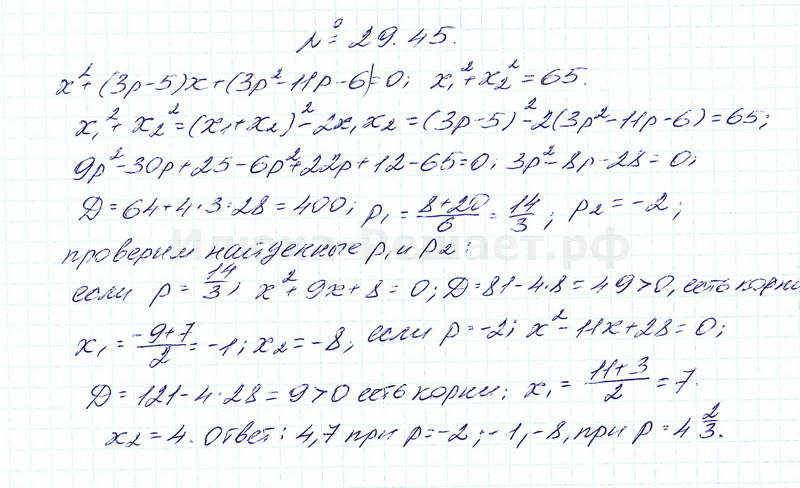 № 29.45.
x²+(3p-5)x+(3p²-11p-6)=0; x₁²+x₂²=65.
x₁²+x₂²=(x₁+x₂)²-2x₁x₂=(3p-5)²-2(3p²-11p-6)=65;
9p²-30p+25-6p²+22p+12-65=0; 3p²-8p-28=0;
D=64+4·3·28=400; p₁=(8+20)/6=14/3; p₂=-2;
проверим найденные p₁ и p₂:
если p=14/3, x²+9x+8=0; D=81-4·8=49>0, есть корни
x₁=(-9+7)/2=-1; x₂=-8; если p=-2; x²-11x+28=0;
D=121-4·28=9>0 есть корни; x₁=(11+3)/2=7.
x₂=4. Ответ: 4,7 при p=-2; -1,-8, при p=4 2/3.